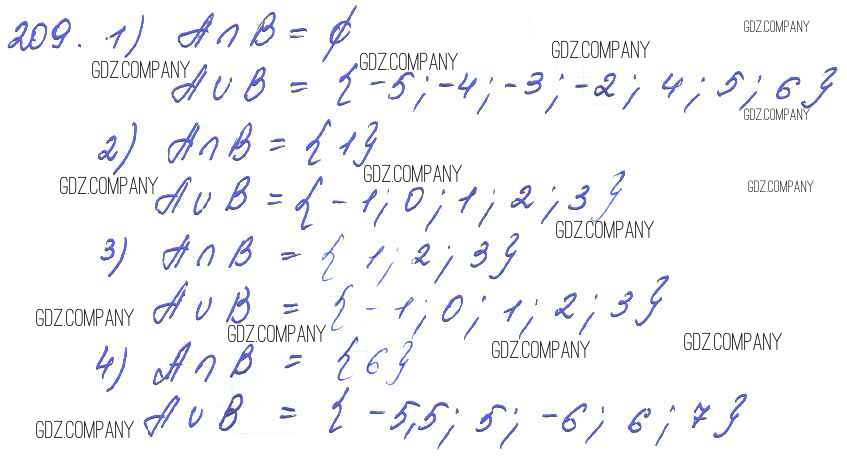 209. 1) A∩B = ∅
GDZ.COMPANY
GDZ.COMPANY
GDZ.COMPANY
GDZ.COMPANY
A∪B = {-5; -4; -3; -2; 4; 5; 6}
GDZ.COMPANY
2) A∩B = {1}
GDZ.COMPANY
GDZ.COMPANY
GDZ.COMPANY
A∪B = {-1; 0; 1; 2; 3}
GDZ.COMPANY
3) A∩B = {1; 2; 3}
A∪B = {-1; 0; 1; 2; 3}
GDZ.COMPANY
GDZ.COMPANY
GDZ.COMPANY
GDZ.COMPANY
4) A∩B = {6}
A∪B = {-5,5; 5; -6; 6; 7}
GDZ.COMPANY